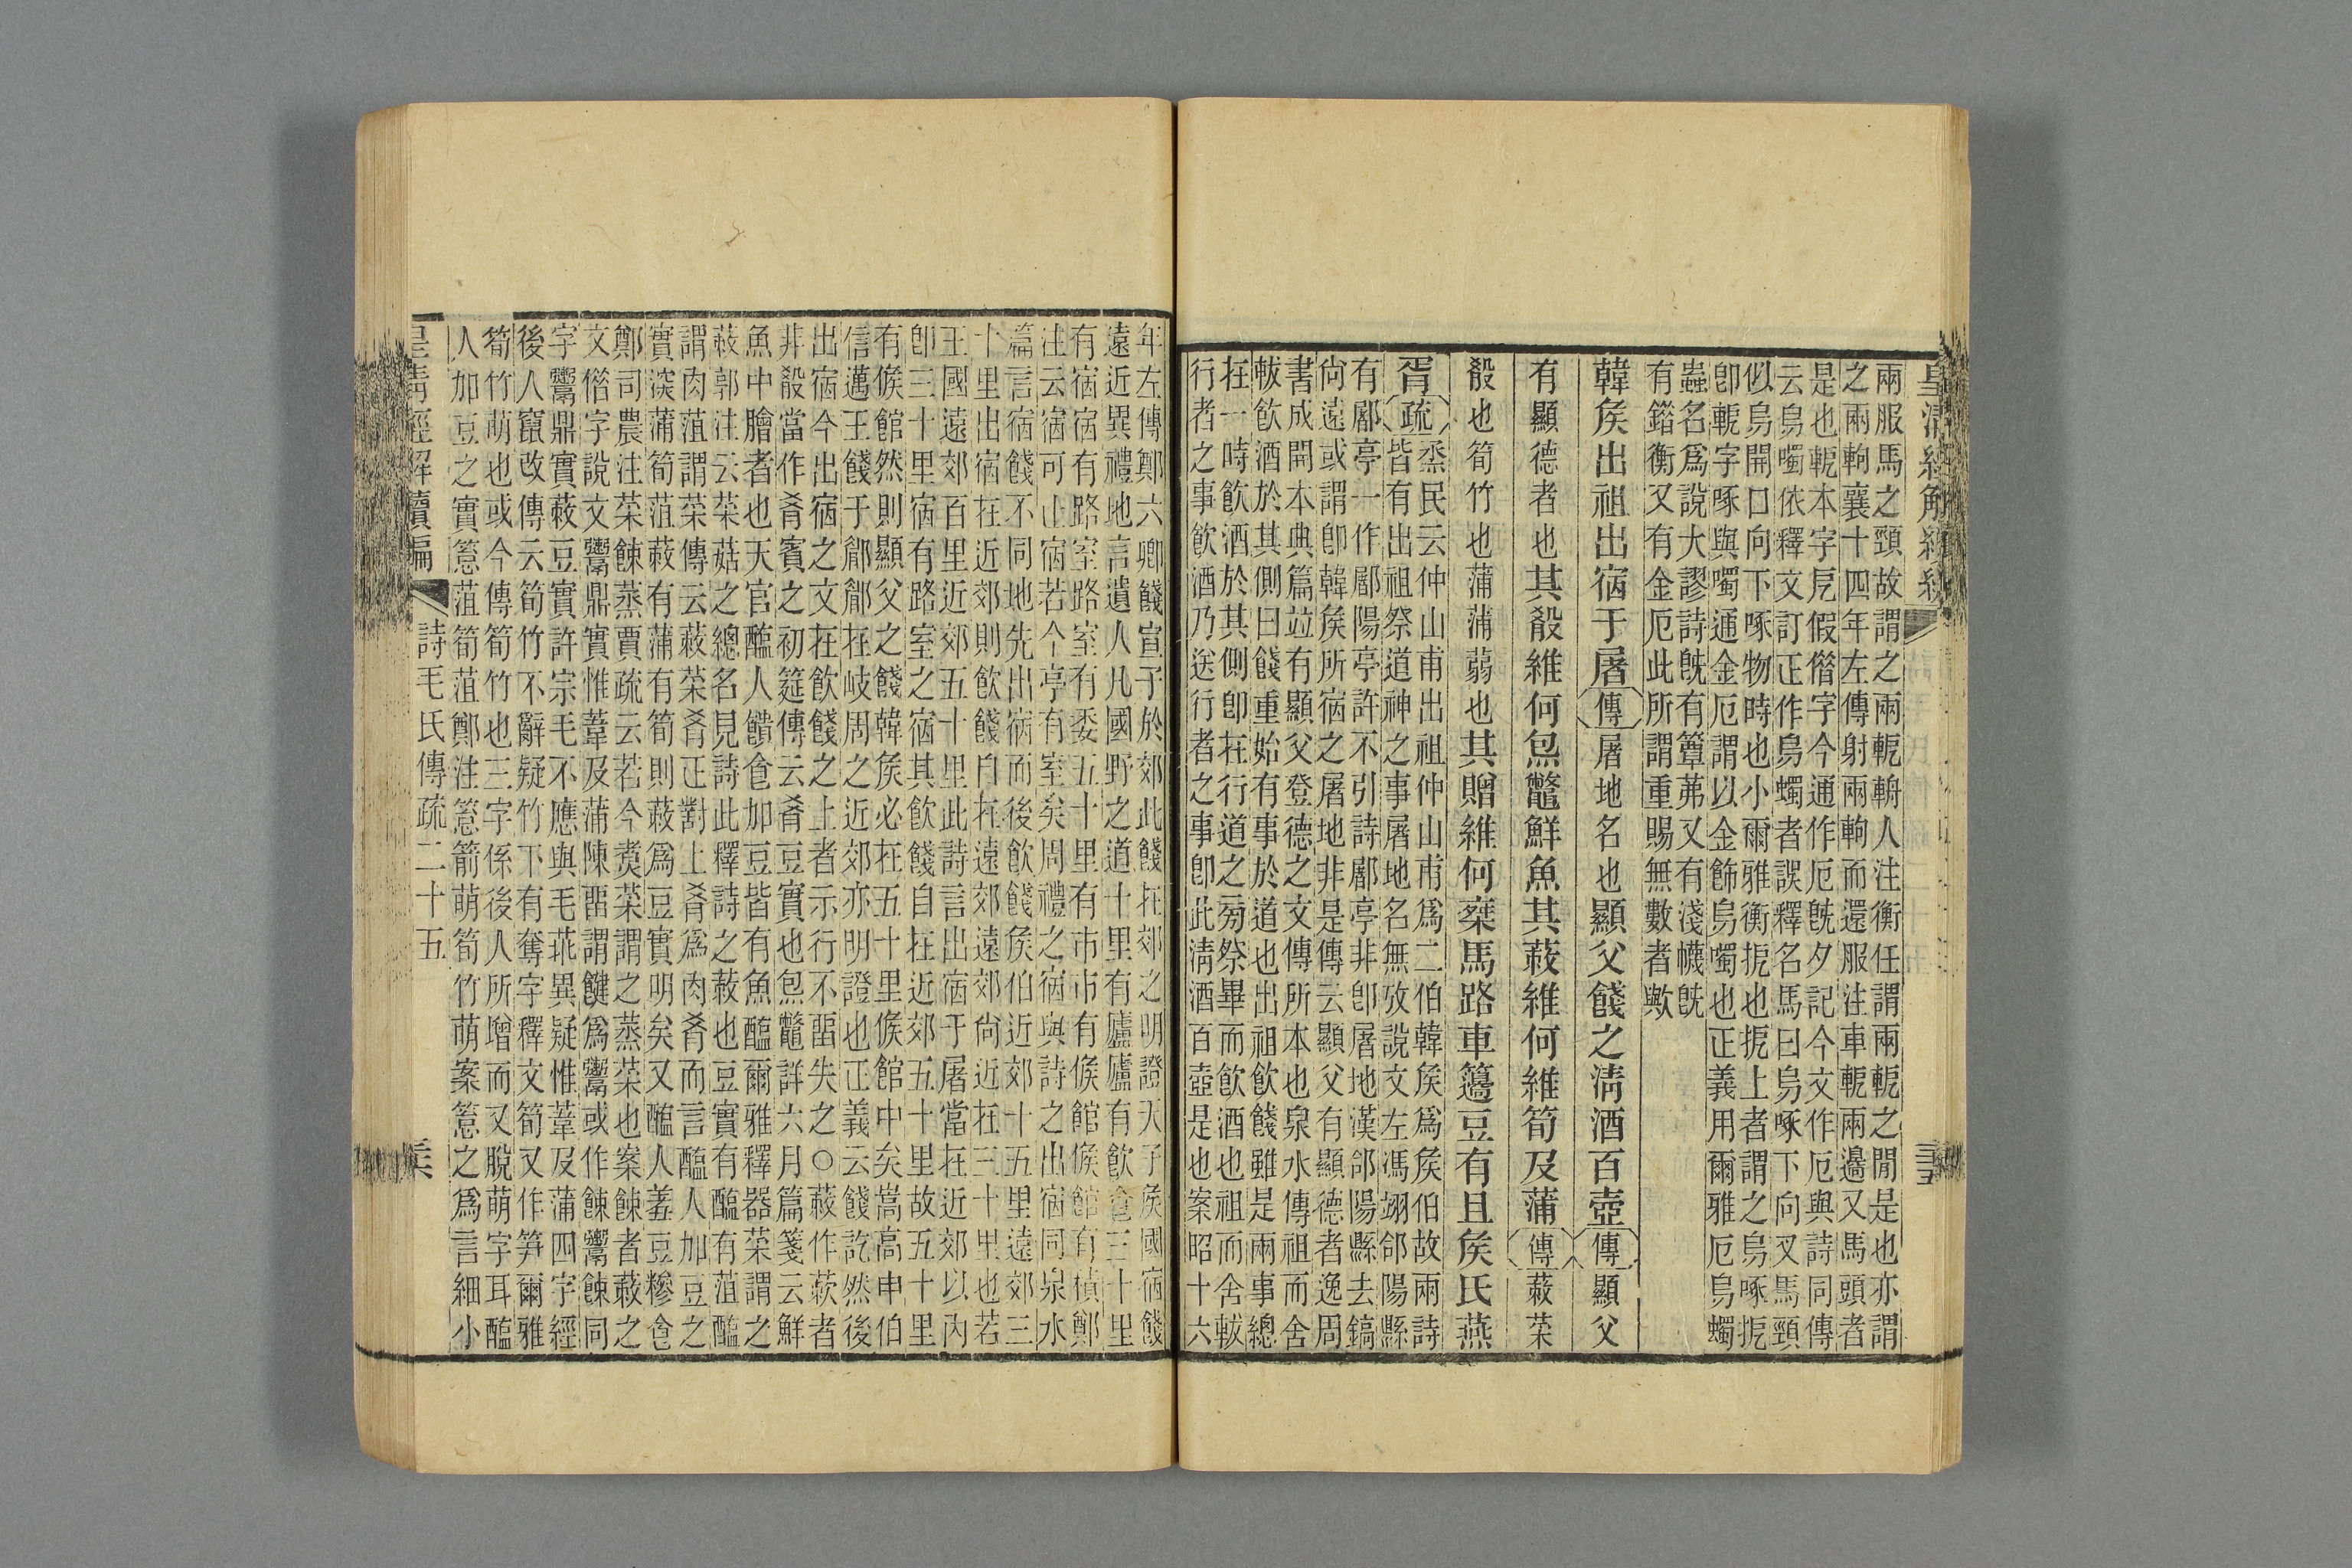 皇清經解續編
兩服馬之頸故謂之兩軛輈人注衡任謂兩軛之閒是也亦謂
之兩軥襄十四年左傳射兩軥而還服注車軛兩邊叉馬頭者
是也軛本字㕈假僃字今通作厄旣夕記今文作厄與詩同傳
云烏噣依釋文訂正作烏蠋者誤釋名馬曰烏啄下向叉馬頸
似烏開口向下啄物時也小爾雅衡扼也扼上者謂之烏啄扼
卽軛字啄與噣通金厄謂以金飾烏噣也正義用爾雅厄烏蠋
蟲名爲說大謬詩旣有簟茀又有淺幭旣
有鍇衡又有金厄此所謂重賜無數者歟
韓矦出祖出宿于屠傳屠地名也顯父餞之淸酒百壺傳顯父
有顯德者也其殽維何炰鼈鮮魚其蔌維何維筍及蒲傳蔌菜
殽也筍竹也蒲蒲蒻也其贈維何乘馬路車籩豆有且矦氏燕
胥疏烝民云仲山甫出祖仲山甫爲二伯韓矦爲矦伯故兩詩
皆有出祖祭道神之事屠地名無攷說文左馮翊郃陽縣
有鄜亭一作鄜陽亭許不引詩鄜亭非卽屠地漢郃陽縣去鎬
尙遠或謂卽韓矦所宿之屠地非是傳云顯父有顯德者逸周
書成開本典篇竝有顯父登德之文傳所本也泉水傳祖而舍
軷飮酒於其側曰餞重始有事於道也出祖飮餞雖是兩事總
在一時飮酒於其側卽在行道之旁祭畢而飮酒也祖而舍軷
行者之事飮酒乃送行者之事卽此淸酒百壺是也案昭十六
年左傳鄭六卿餞宣子於郊此餞在郊之明證天子矦國宿餞
遠近異禮地言遺人凡國野之道十里有廬廬有飮食三十里
有宿宿有路室路室有委五十里有市市有候館候館有積鄭
注云宿可止宿若今亭有室矣周禮之宿與詩之出宿同泉水
篇言宿餞不同地先出宿而後飮餞矦伯近郊十五里遠郊三
十里出宿在近郊則飮餞自在遠郊遠郊尙近在三十里也若
王國遠郊百里近郊五十里此詩言出宿于屠當在近郊以內
卽三十里宿有路室之宿其飮餞自在近郊五十里故五十里
有候館然則顯父之餞韓矦必在五十里候館中矣嵩高申伯
信邁王餞于郿郿在岐周之近郊亦明證也正義云餞訖然後
出宿今出宿之文在飮餞之上者示行不留失之○蔌作蔌者
非殽當作肴賓之初筵傳云肴豆實也炰鼈詳六月篇箋云鮮
魚中膾者也天官醢人饋食加豆皆有魚醢爾雅釋器菜謂之
蔌郭注云菜菇之總名見詩此釋詩之蔌也豆實有醢有菹醢
謂肉菹謂菜傳云蔌菜肴正對上肴爲肉肴而言醢人加豆之
實深蒲筍菹蔌有蒲有筍則蔌爲豆實明矣又醢人羞豆糝食
鄭司農注菜餗蒸賈疏云若今煑菜謂之蒸菜也案餗者蔌之
文僃字說文鬻鼎實惟葦及蒲陳留謂鍵爲鬻或作餗鬻餗同
字鬻鼎實蔌豆實許宗毛不應與毛乖異疑惟葦及蒲四字經
後人竄改傳云筍竹不辭疑竹下有奪字釋文筍又作笋爾雅
筍竹萌也或今傳筍竹也三字係後人所增而又脫萌字耳醢
人加豆之實箈菹筍菹鄭注箈箭萌筍竹萌案箈之爲言細小
皇淸經解續編 詩毛氏傳疏二十五